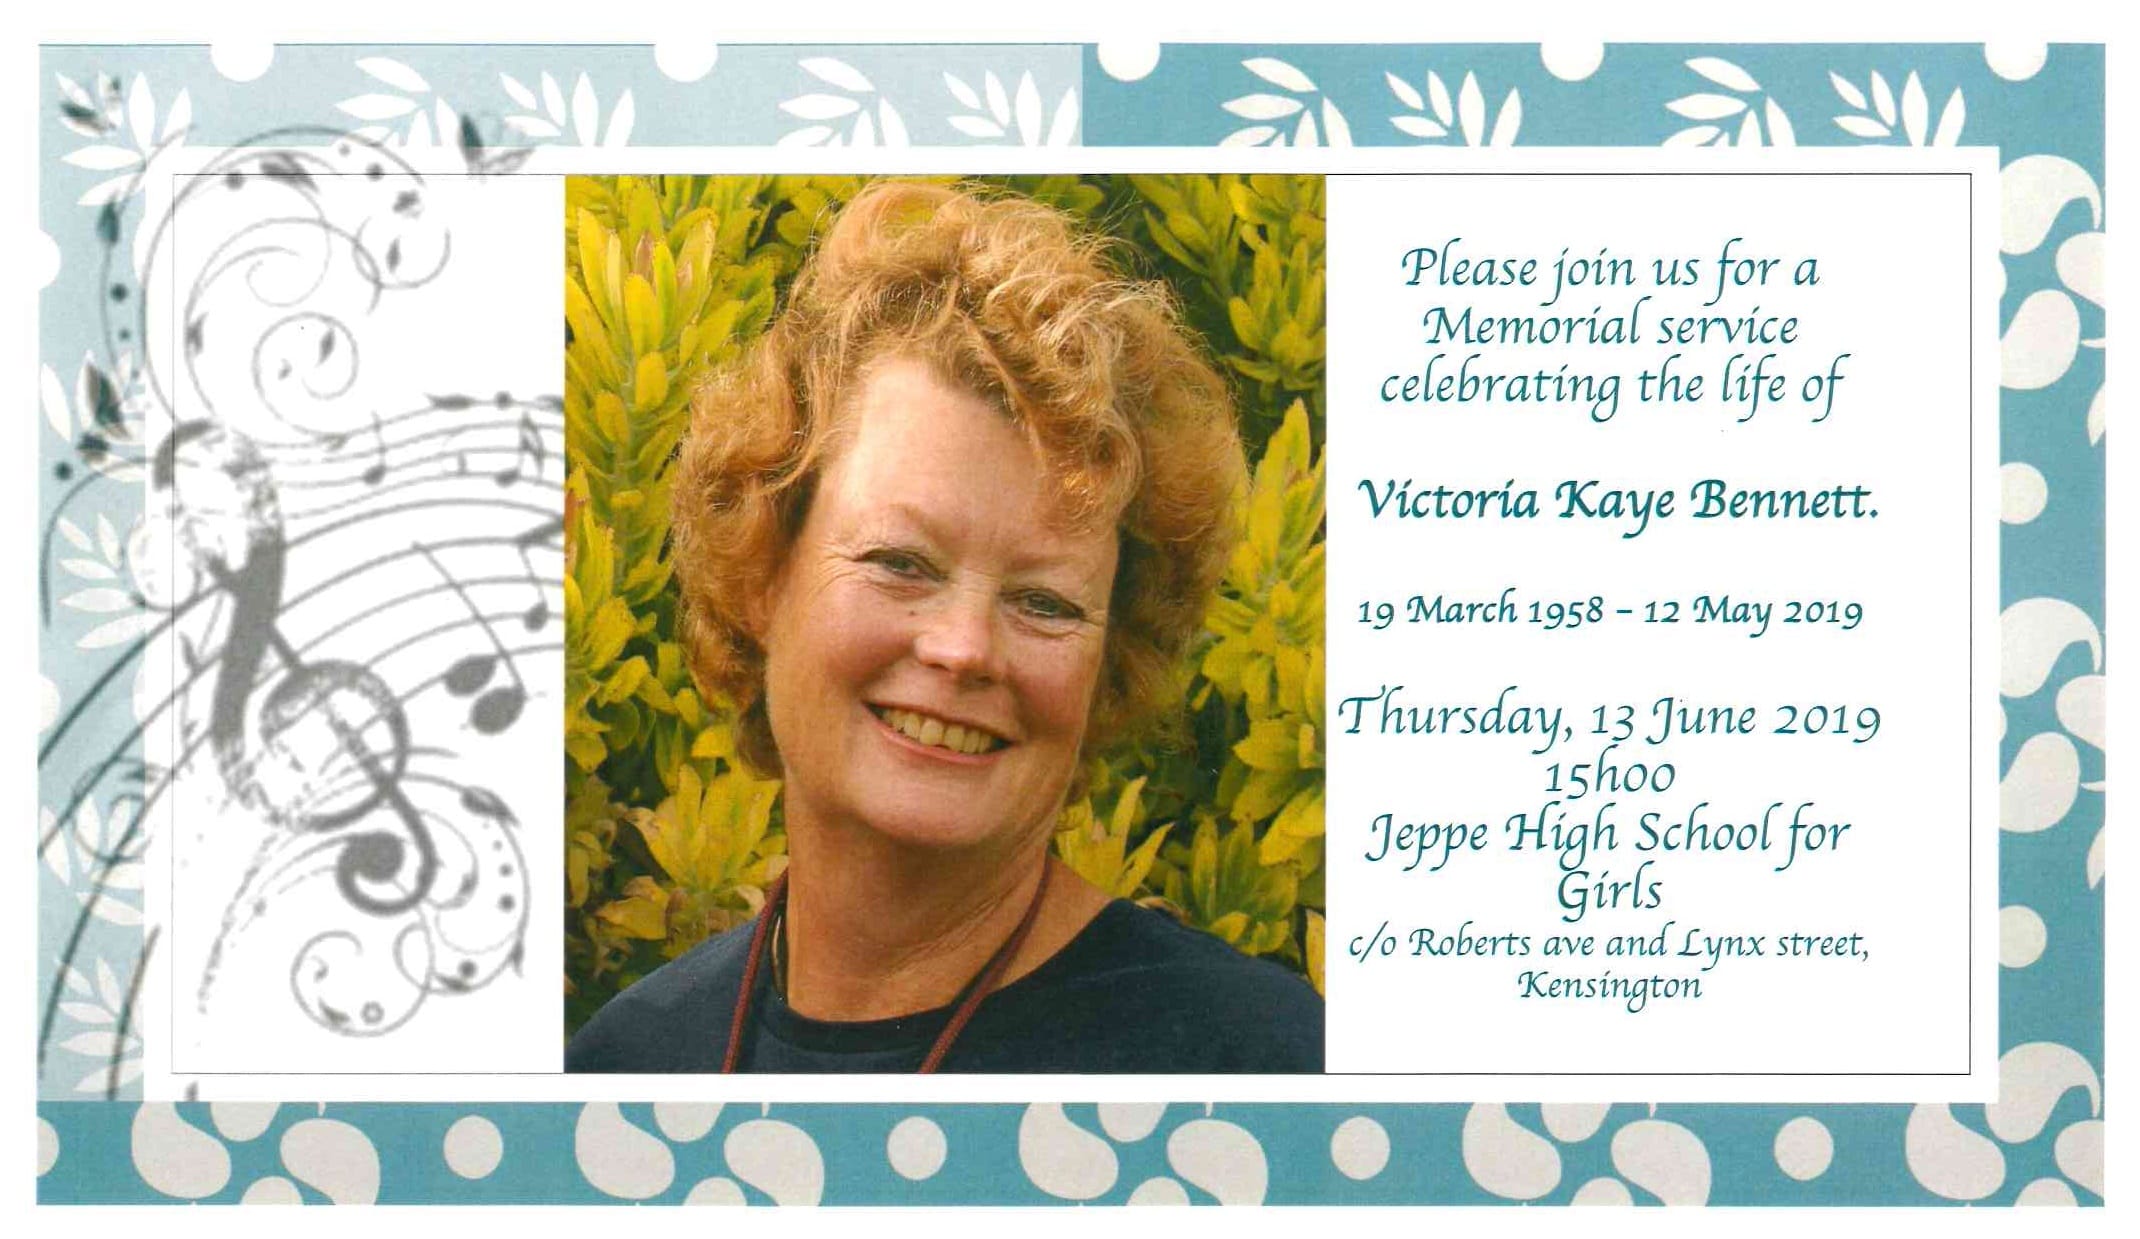 Please join us for a
Memorial service
celebrating the life of
Victoria Kaye Bennett.
19 March 1958 – 12 May 2019
Thursday, 13 June 2019
15h00
Jeppe High School for
Girls
c/o Roberts ave and Lynx street,
Kensington